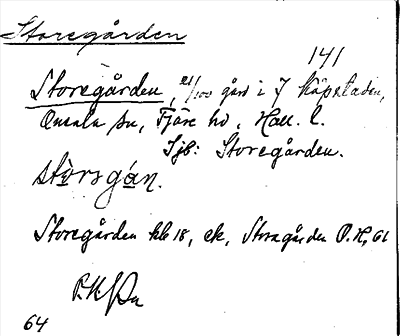 Storegården
141
Storegården, 21/100 gård i 7 Köpstaden,
Onsala sn, Fjäre hd, Hall. l.
Sjb: Storegården.
stòrsgán.
Storegården kb 18, ek, Storagården P.H, 61
64